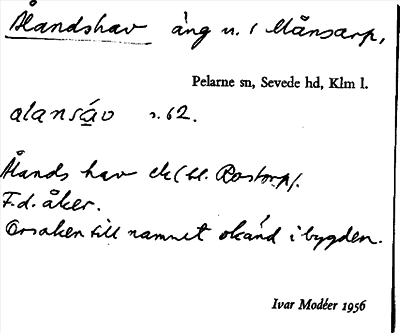 Ålandshav äng n. i Månsarp,
Pelarne sn, Sevede hd, Klm l.
alansáv s. 62.
Ålands hav ek (bl. Rostorp).
F.d. åker.
Orsaken till namnet okänd i bygden.
Ivar Modéer 1956